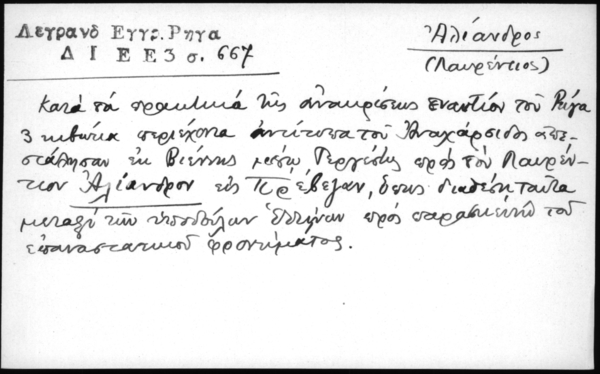 Λεγρανδ Εγγρ. Ρηγα
Δ Ι Ε Ε 3 σ. 667
Ἀλίανδρος
(Λαυρέντιος)
Κατὰ τὰ πρακτικά τῆς ἀνακρίσεως ἐναντίον τοῦ Ρήγα
3 κιβώτια περιέχοντα ἀντίτυπα τοῦ Ἀναχάρσιδος ἀπε-
στάλησαν ἐκ Βιέννης μέσῳ Τεργέστης πρὸς τὸν Λαυρέν-
τιον Ἀλίανδρον εἰς Πρέβεζαν, ὅπως διαθέσῃ ταῦτα
μεταξὺ τῶν ὑποδούλων Ἑλλήνων πρὸς παρασκευὴν τοῦ
ἐπαναστατικοῦ φρονήματος.